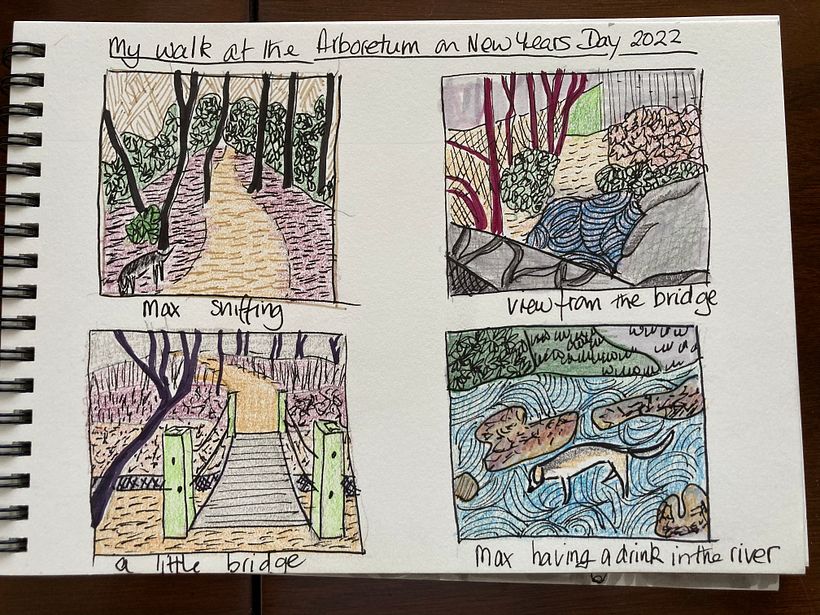 My walk at the Arboretum on New Years Day 2022
Max sniffing
view from the bridge
a little bridge
Max having a drink in the river